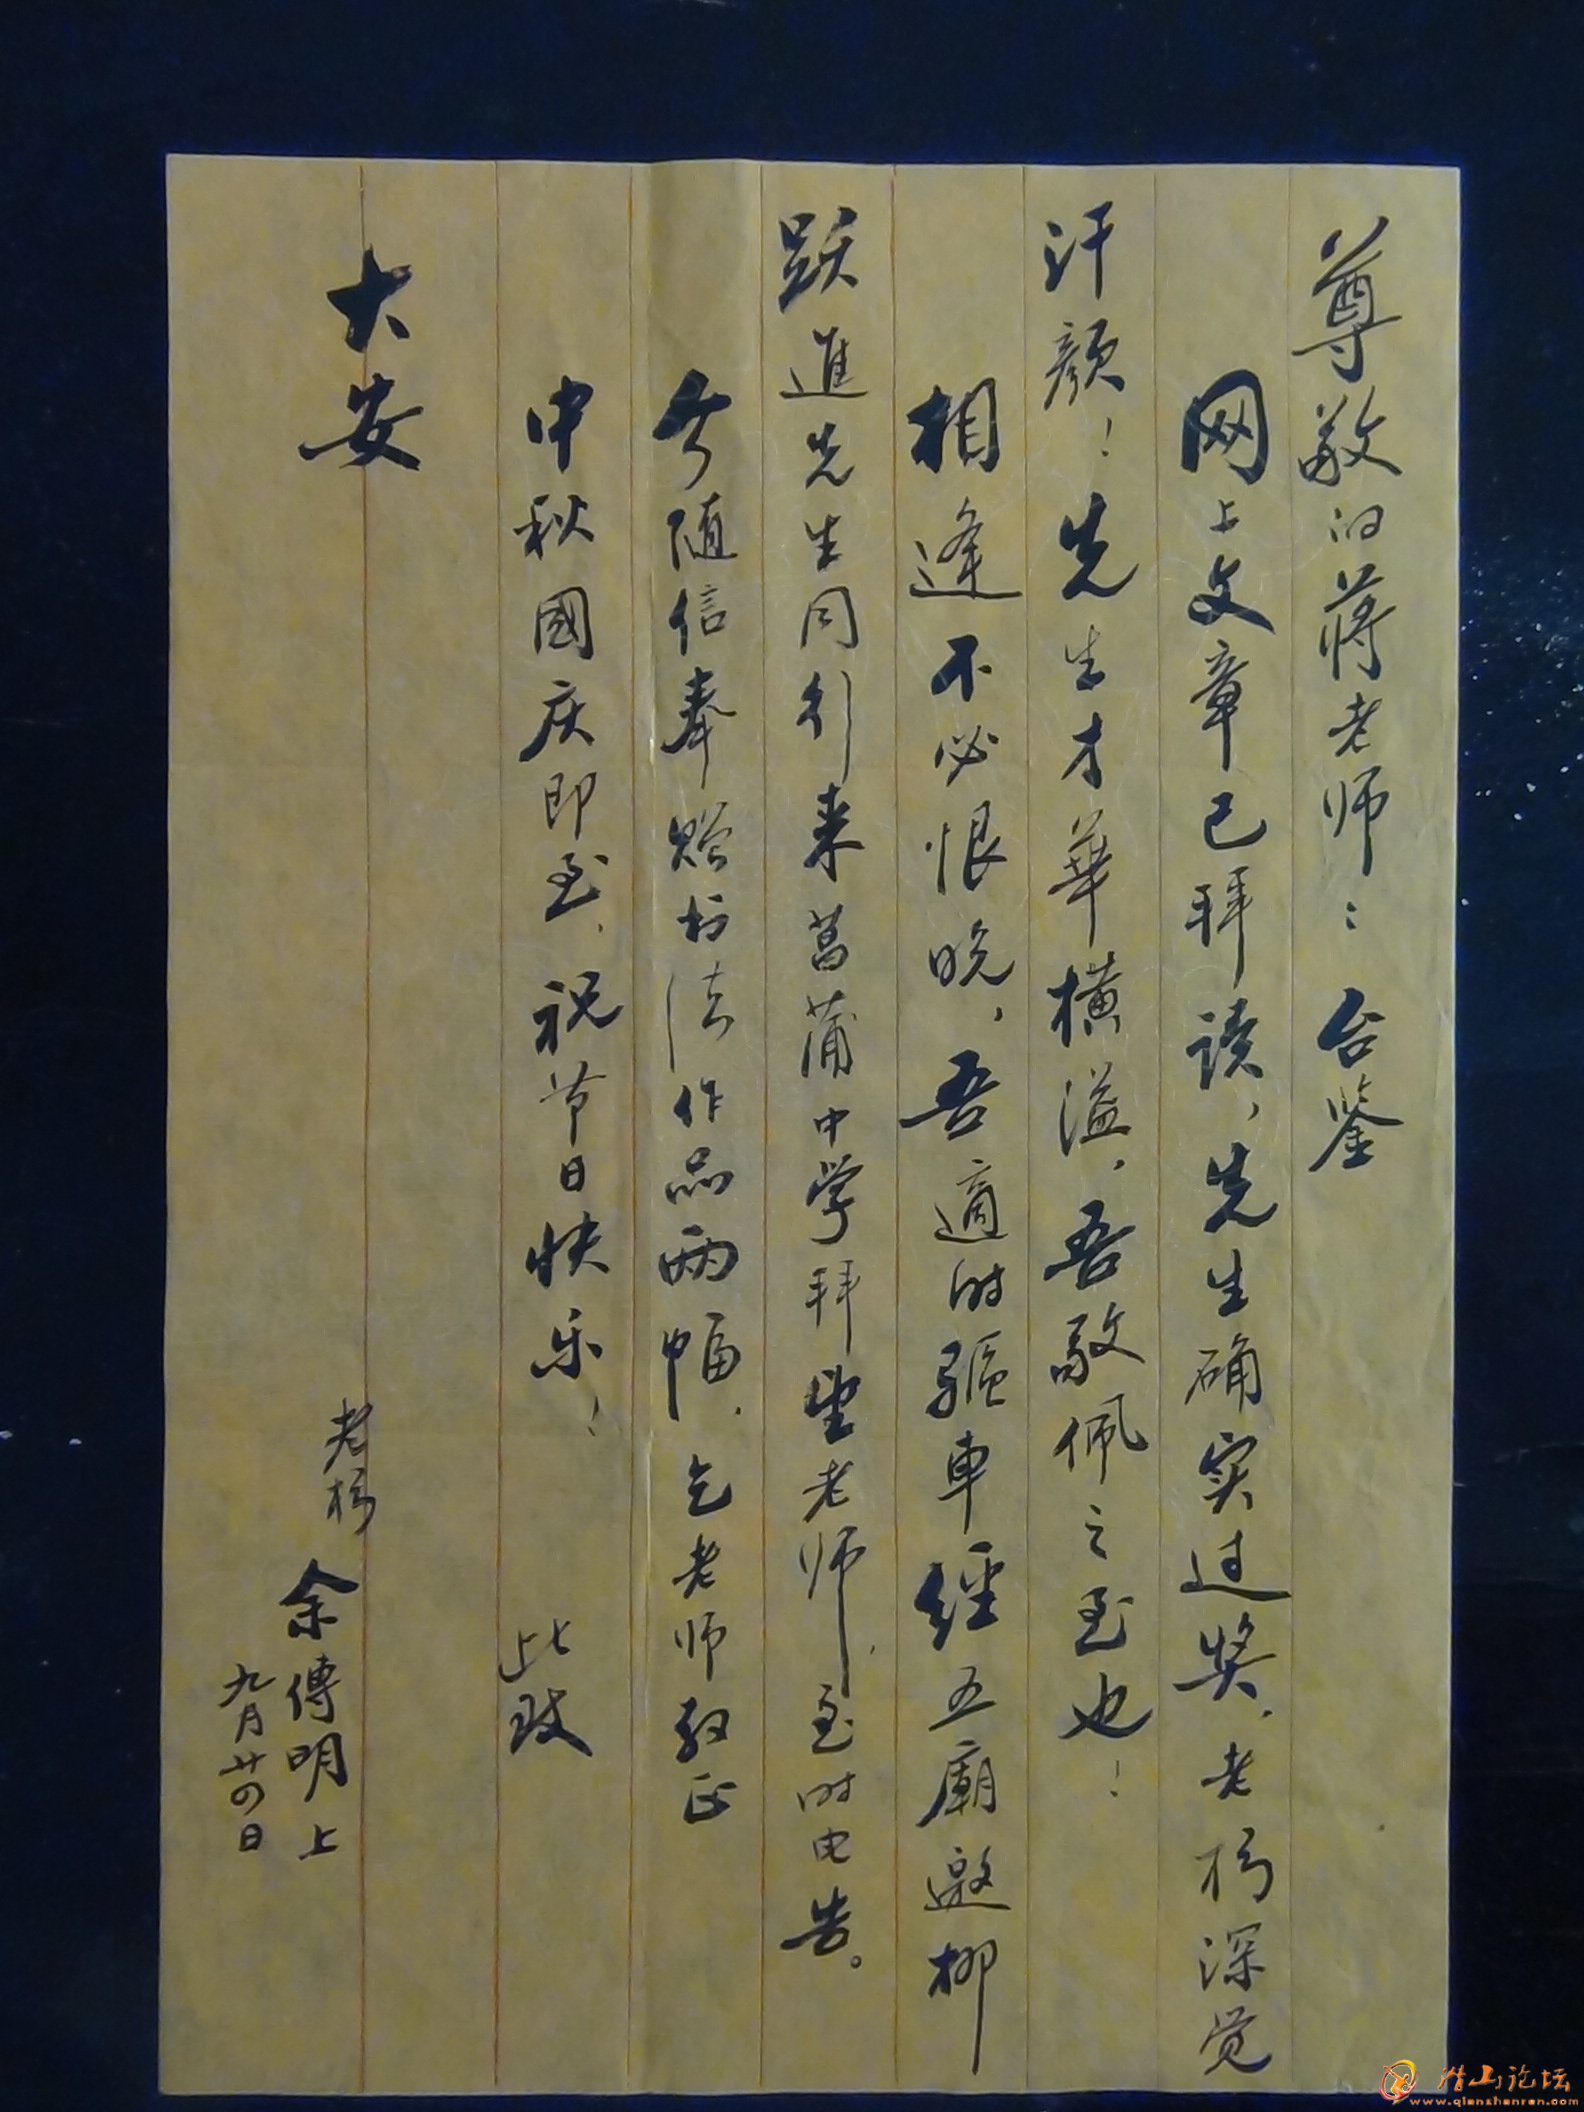 尊敬的蒋老师：台鉴
网上文章已拜读，先生确实过奖，老朽深觉
汗颜！先生才華横溢，吾敬佩之至也！
相逢不必恨晚，吾適时驅車經五廟邀柳
跃進先生同行来菖蒲中学拜望老师，至时电告。
今随信奉赠书法作品两幅，乞老师教正
中秋國庆即至，祝节日快乐！
此致
大安
老朽 余傳明上
九月廿四日
潜山论坛
www.qianshanren.com